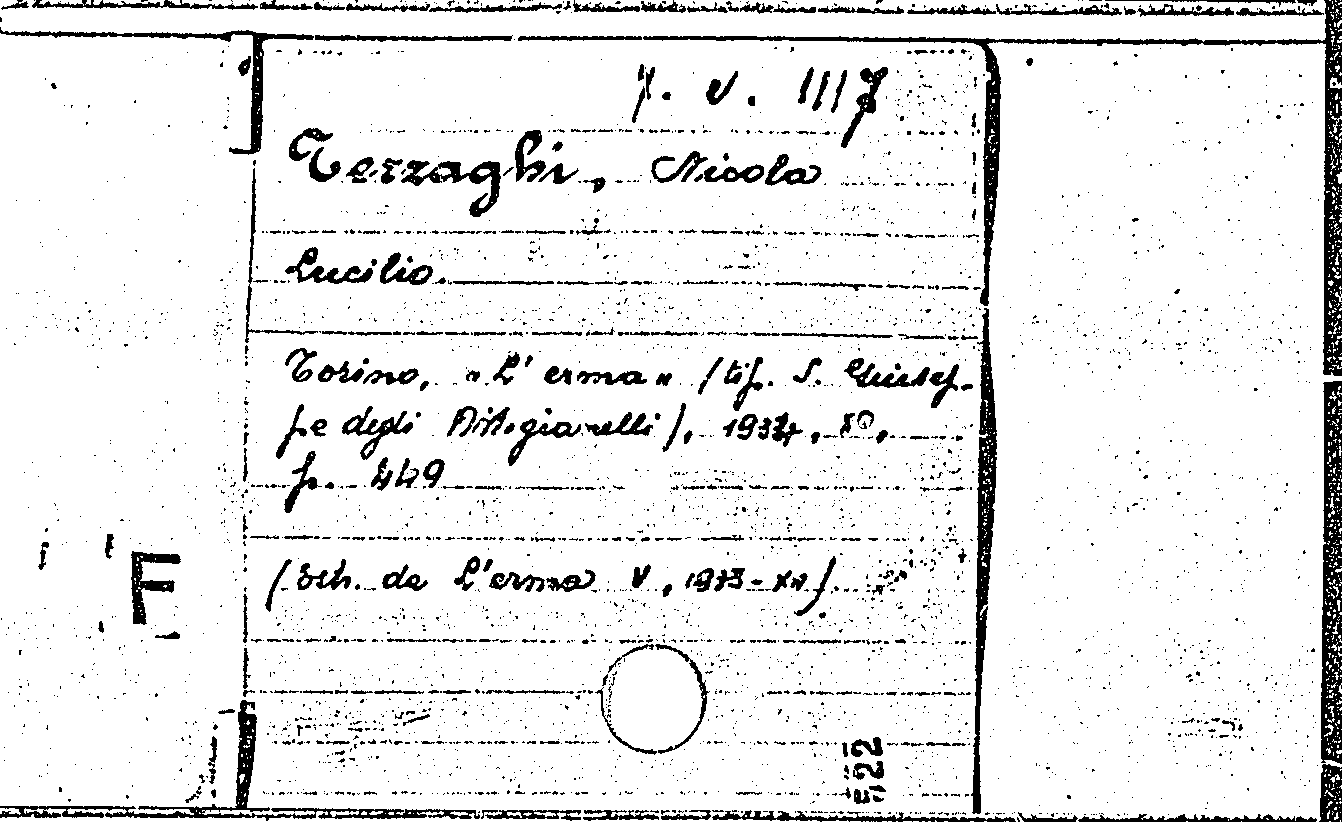 7. v. 1117
Terzaghi, Nicola
Lucilio.
Torino, "L'erma" (tip. S. Giusep-
pe degli Artigianelli), 1934, 8º,
p. 449
(Sch. de L'erma V,
F
522